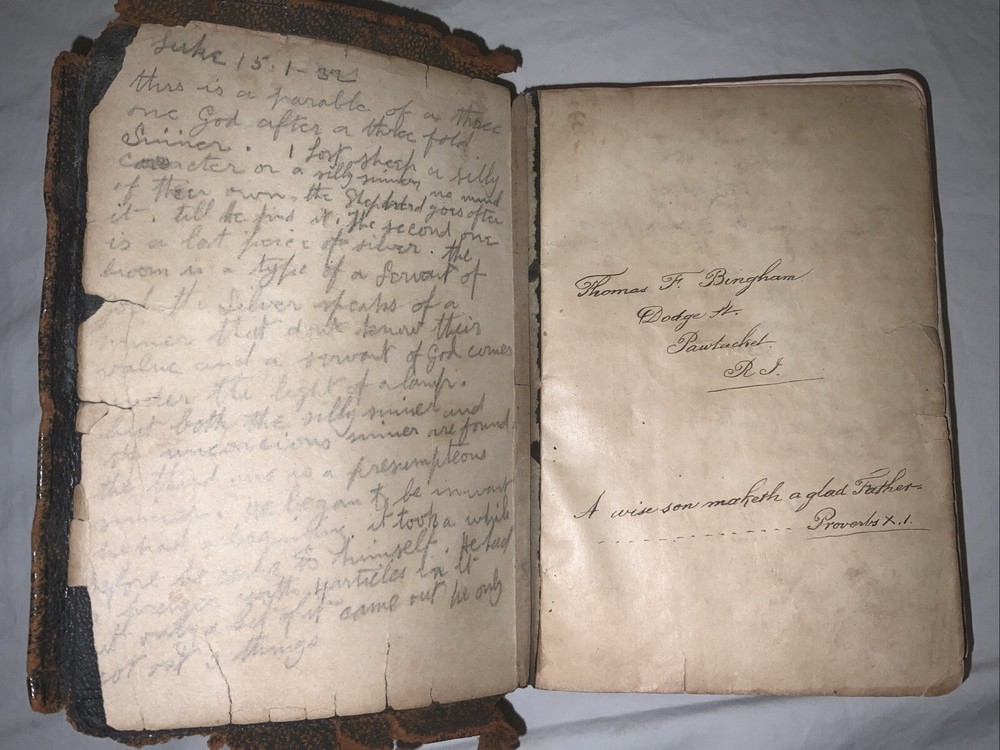 Luke 15.1-32
this is a parable of a three
one God after a three fold
Sinner. 1 Lost sheep a silly
caracter or a silly sinner, no mind
of their own, the Shepherd goes after
it. till he find it. The second one
is a lost peice of silver. the
broom is a type of a Servant of
the Silver speaks of a
sinner that dont know their
value and a servant of God comes
under the light of a lamp.
but both the silly sinner and
the unconcious sinner are found.
the third one is a presumpteous
sinner. He began to be in want
he had it took a while
before he came to himself. He had
a with 4 articles in it
but only a bit of it came out he only
got out 3 things
Thomas F. Bingham
Dodge St.
Pawtucket
R I.
A wise son maketh a glad Father-
Proverbs X.1.